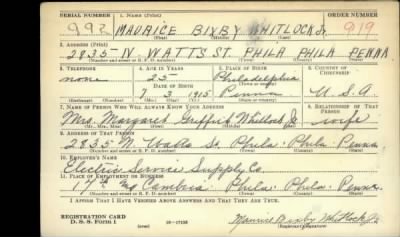 SERIAL NUMBER 1. NAME (Print) ORDER NUMBER
992 MAURICE BIXBY WHITLOCK Jr. 919
(First) (Middle) (Last)
2. ADDRESS (Print)
2835 N WATTS ST. PHILA PHILA PENNA
(Number and street or R. F. D. number) (Town) (County) (State)
3. TELEPHONE 4. AGE IN YEARS 5. PLACE OF BIRTH 6. COUNTRY OF CITIZENSHIP
none 25 Philadelphia
DATE OF BIRTH (Town or county)
7 3 1915 Penna U.S.A
(Exchange) (Number) (Mo.) (Day) (Yr.) (State or country)
7. NAME OF PERSON WHO WILL ALWAYS KNOW YOUR ADDRESS 8. RELATIONSHIP OF THAT PERSON
Mrs. Margaret Griffith Whitlock Jr wife
(Mr., Mrs., Miss) (First) (Middle) (Last)
9. ADDRESS OF THAT PERSON
2835 N. Watts St. Phila. Phila Penna
(Number and street or R. F. D. number) (Town) (County) (State)
10. EMPLOYER'S NAME
Electric Service Supply Co.
11. PLACE OF EMPLOYMENT OR BUSINESS
17th and Cambria Phila. Phila. Penna
(Number and street or R. F. D. number) (Town) (County) (State)
I AFFIRM THAT I HAVE VERIFIED ABOVE ANSWERS AND THAT THEY ARE TRUE.
REGISTRATION CARD
D. S. S. Form 1 (over) 16-17105 Maurice Bixby Whitlock Jr.
(Registrant's signature)